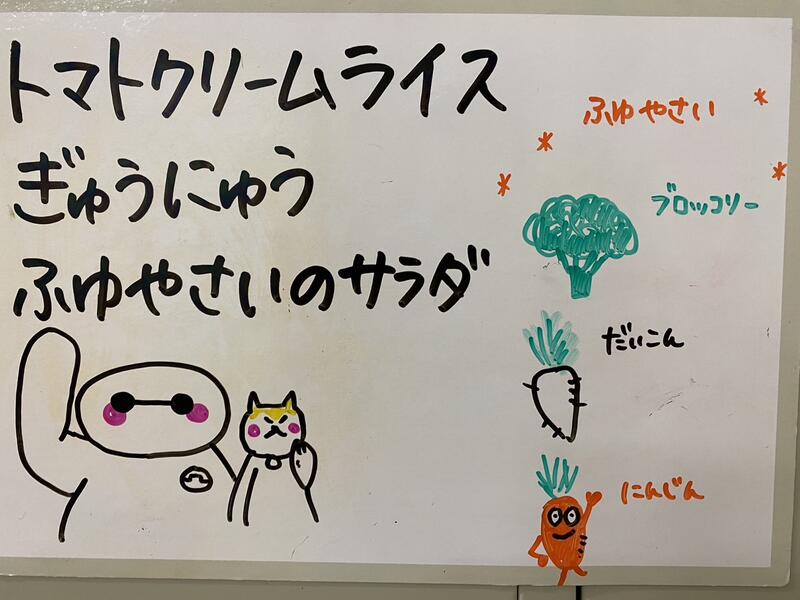 トマトクリームライス
ぎゅうにゅう
ふゆやさいのサラダ
ふゆやさい
ブロッコリー
だいこん
にんじん